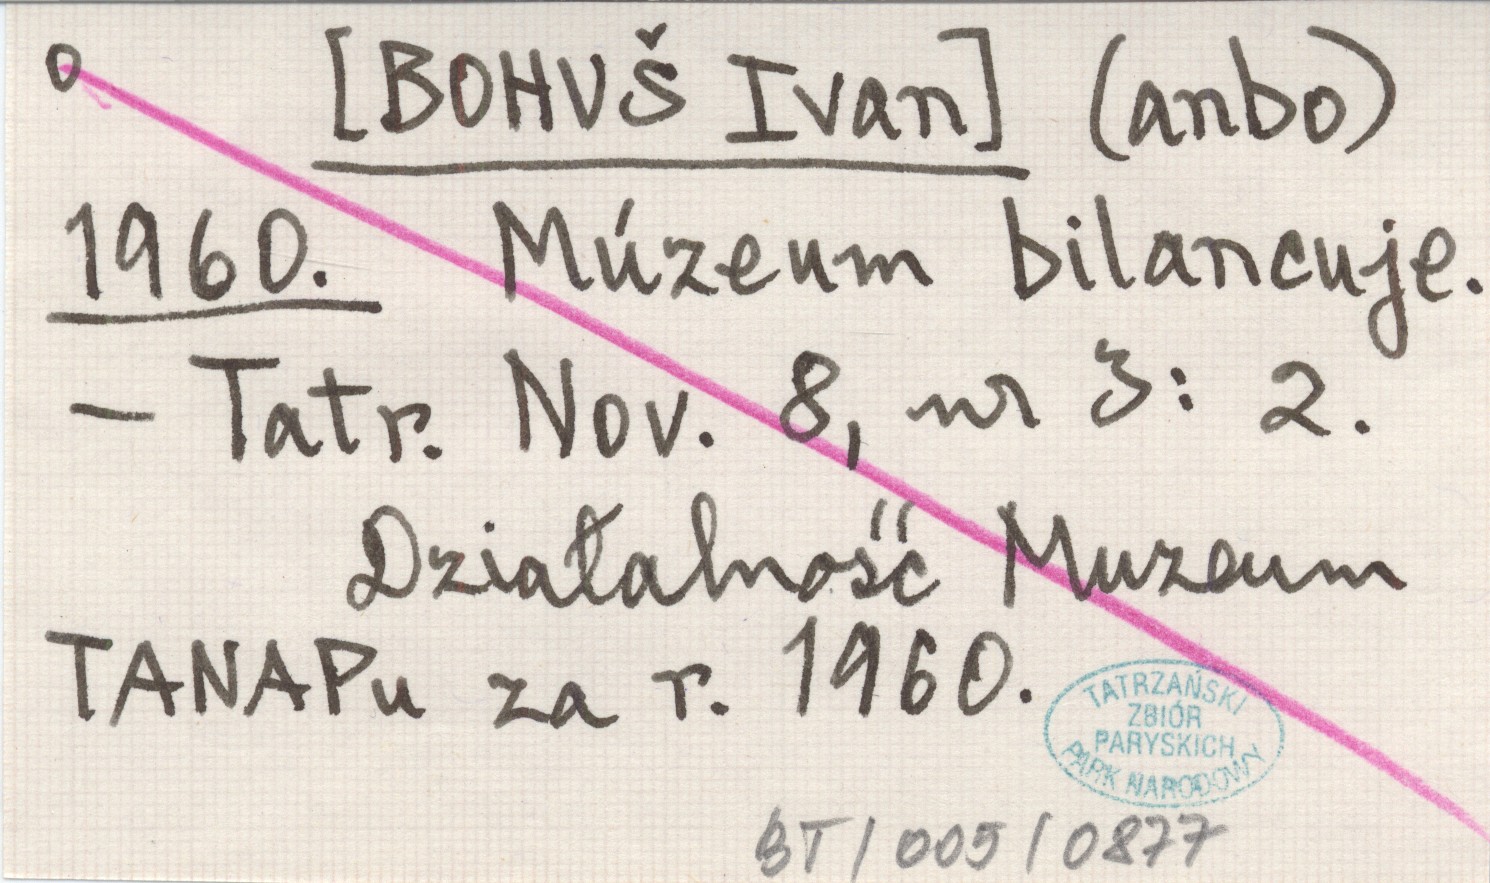 O [BOHUŠ Ivan] (anbo)
1960. Múzeum bilancuje.
– Tatr. Nov. 8, nr 3: 2.
Działalność Muzeum
TANAPu za r. 1960.
TATRZAŃSKI
ZBIÓR
PARYSKICH
PARK NARODOWY
BT/005/0877